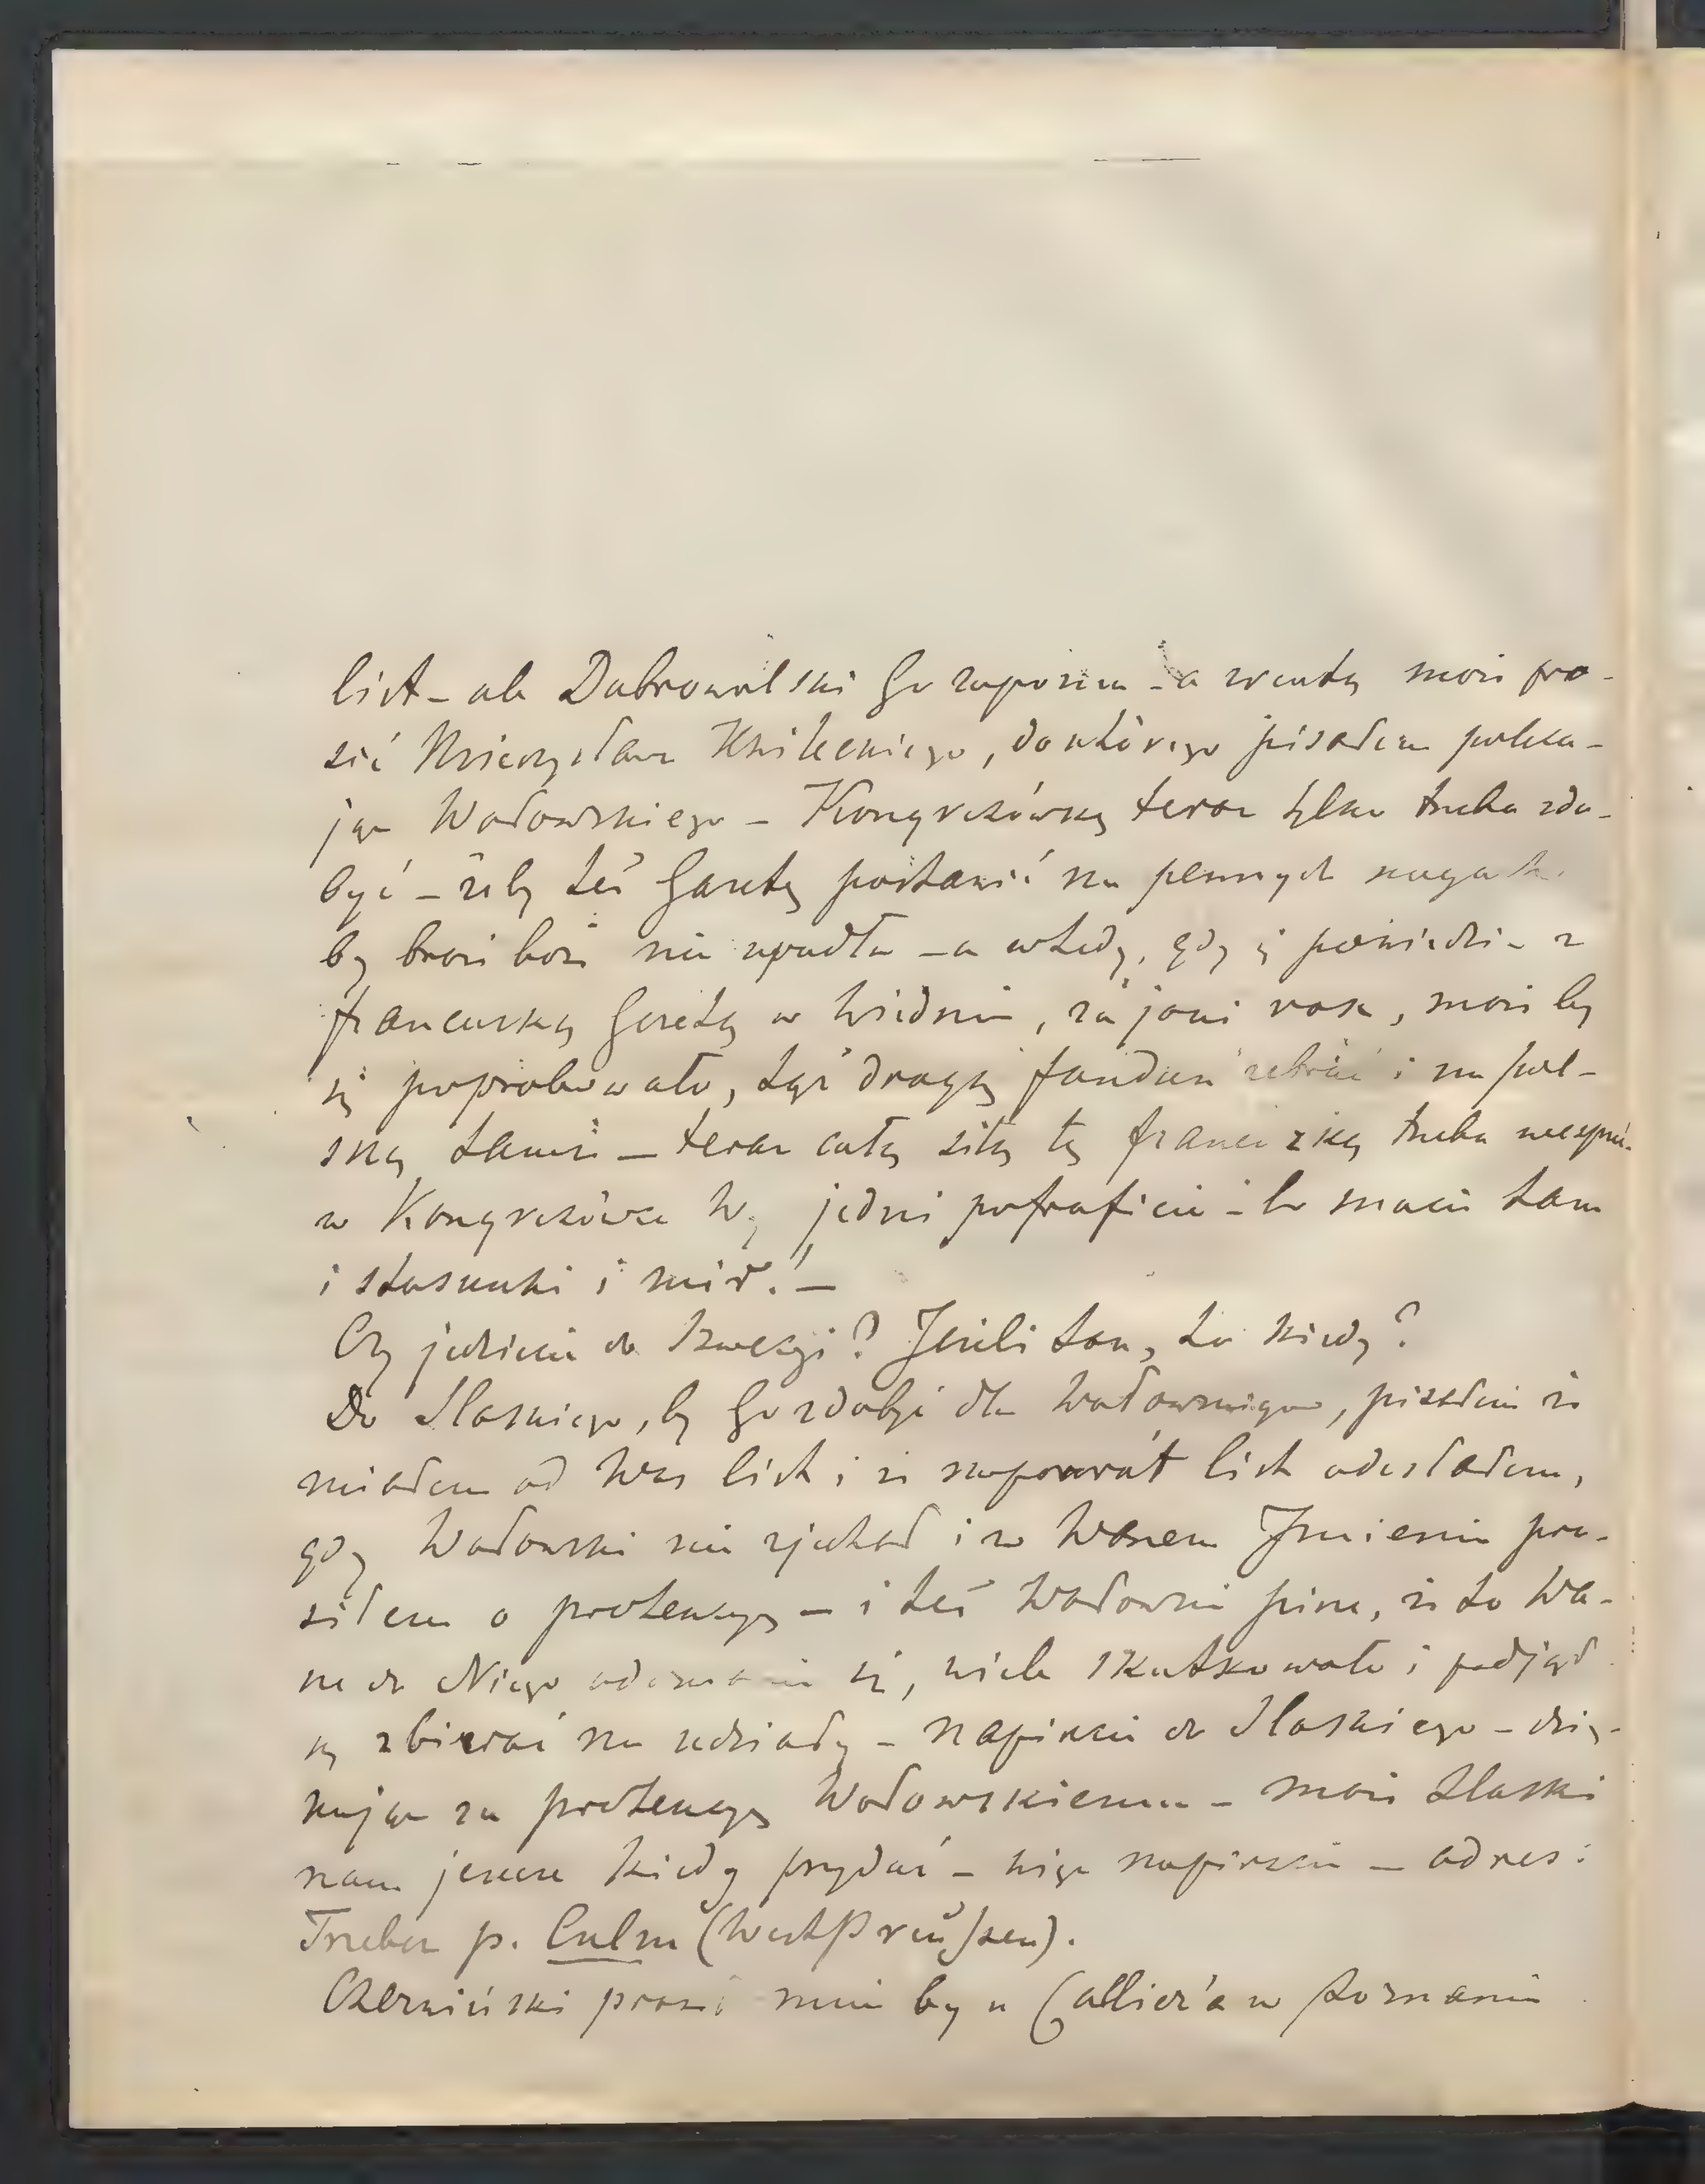 list – ale Dabrowolski Go zaprosił – a resztę może pro-
sić Mieczysława Kwileckiego, do którego pisałem poleca-
jąc Wołowskiego – Kongresówkę teraz tylko trzeba zdo-
być – żeby też Gazetę postawić na pewnych nogach
by broń boże nie upadła – a wtedy, gdy się powiedzie z
francuską Gazetą w Wiedniu, za jakiś rok, może by
się poprobowało, tęż drogą fundusz zebrać i na pol-
ską także – teraz całą siłę tę francuzką trzeba wesprzeć
w Kongresówce Wy jedni potraficie – bo macie tam
i stosunki i mir! –
Czy jedziecie do Szwecyi? Jeżeli tak, to kiedy?
Do Slaskiego, by Go zdobyć dla Wołowskiego, pisałem że
miałem od Was list i że napowrót list odesłałem,
gdy Wołowski nie zjechał i w Waszem Imieniu pro-
siłem o protekcyę – i też Wołowski pisze, że to Wa-
sze do Niego odezwanie się, wiele skutkowało i podjął
się zbierać na udziały – napiszcie do Slaskiego – dzię-
kując za protekcyę Wołowskiemu – może Slaski
nam jeszcze kiedy przydać – więc napiszcie – adres:
Trzebcz p. Culm (WestPreußen).
Czerwiński prosi mnie by u Callier'a w Poznaniu